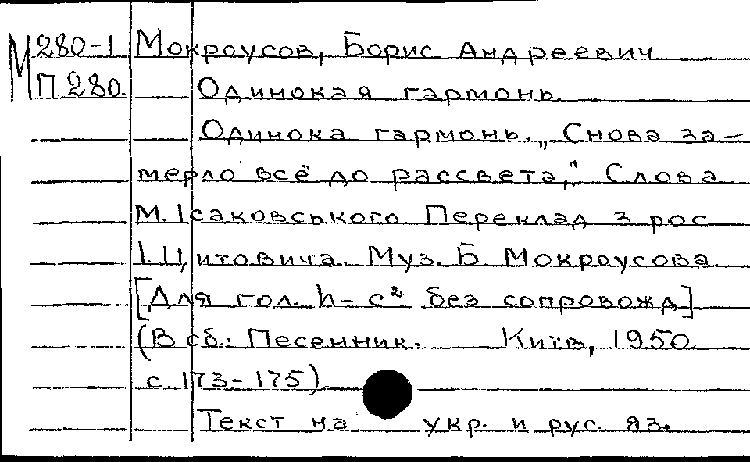 М 280-1 Мокроусов, Борис Андреевич
П 280. Одинокая гармонь.
Одинока гармонь. „Снова за-
мерло всё до рассвета," Слова
М. Ісаковського. Переклад з рос.
І. Цитовича. Муз. Б. Мокроусова.
[Для гол. h - c² без сопровожд.]
(В сб.: Песенник. Київ, 1950
с. 173-175)
Текст на укр. и рус. яз.